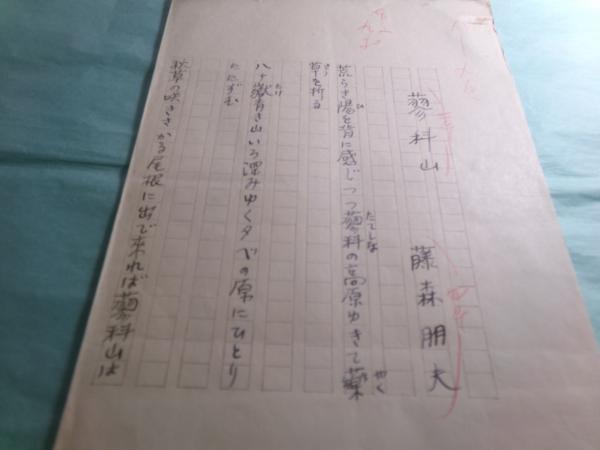 蓼科山　藤森朋夫
荒らき陽を背に感じつつ蓼科の高原ゆきて薬
草を折る
八ヶ嶽青き山いろ深みゆく夕べの原にひとり
たたずむ
秋草の咲きさかる尾根に出で来れば蓼科山は